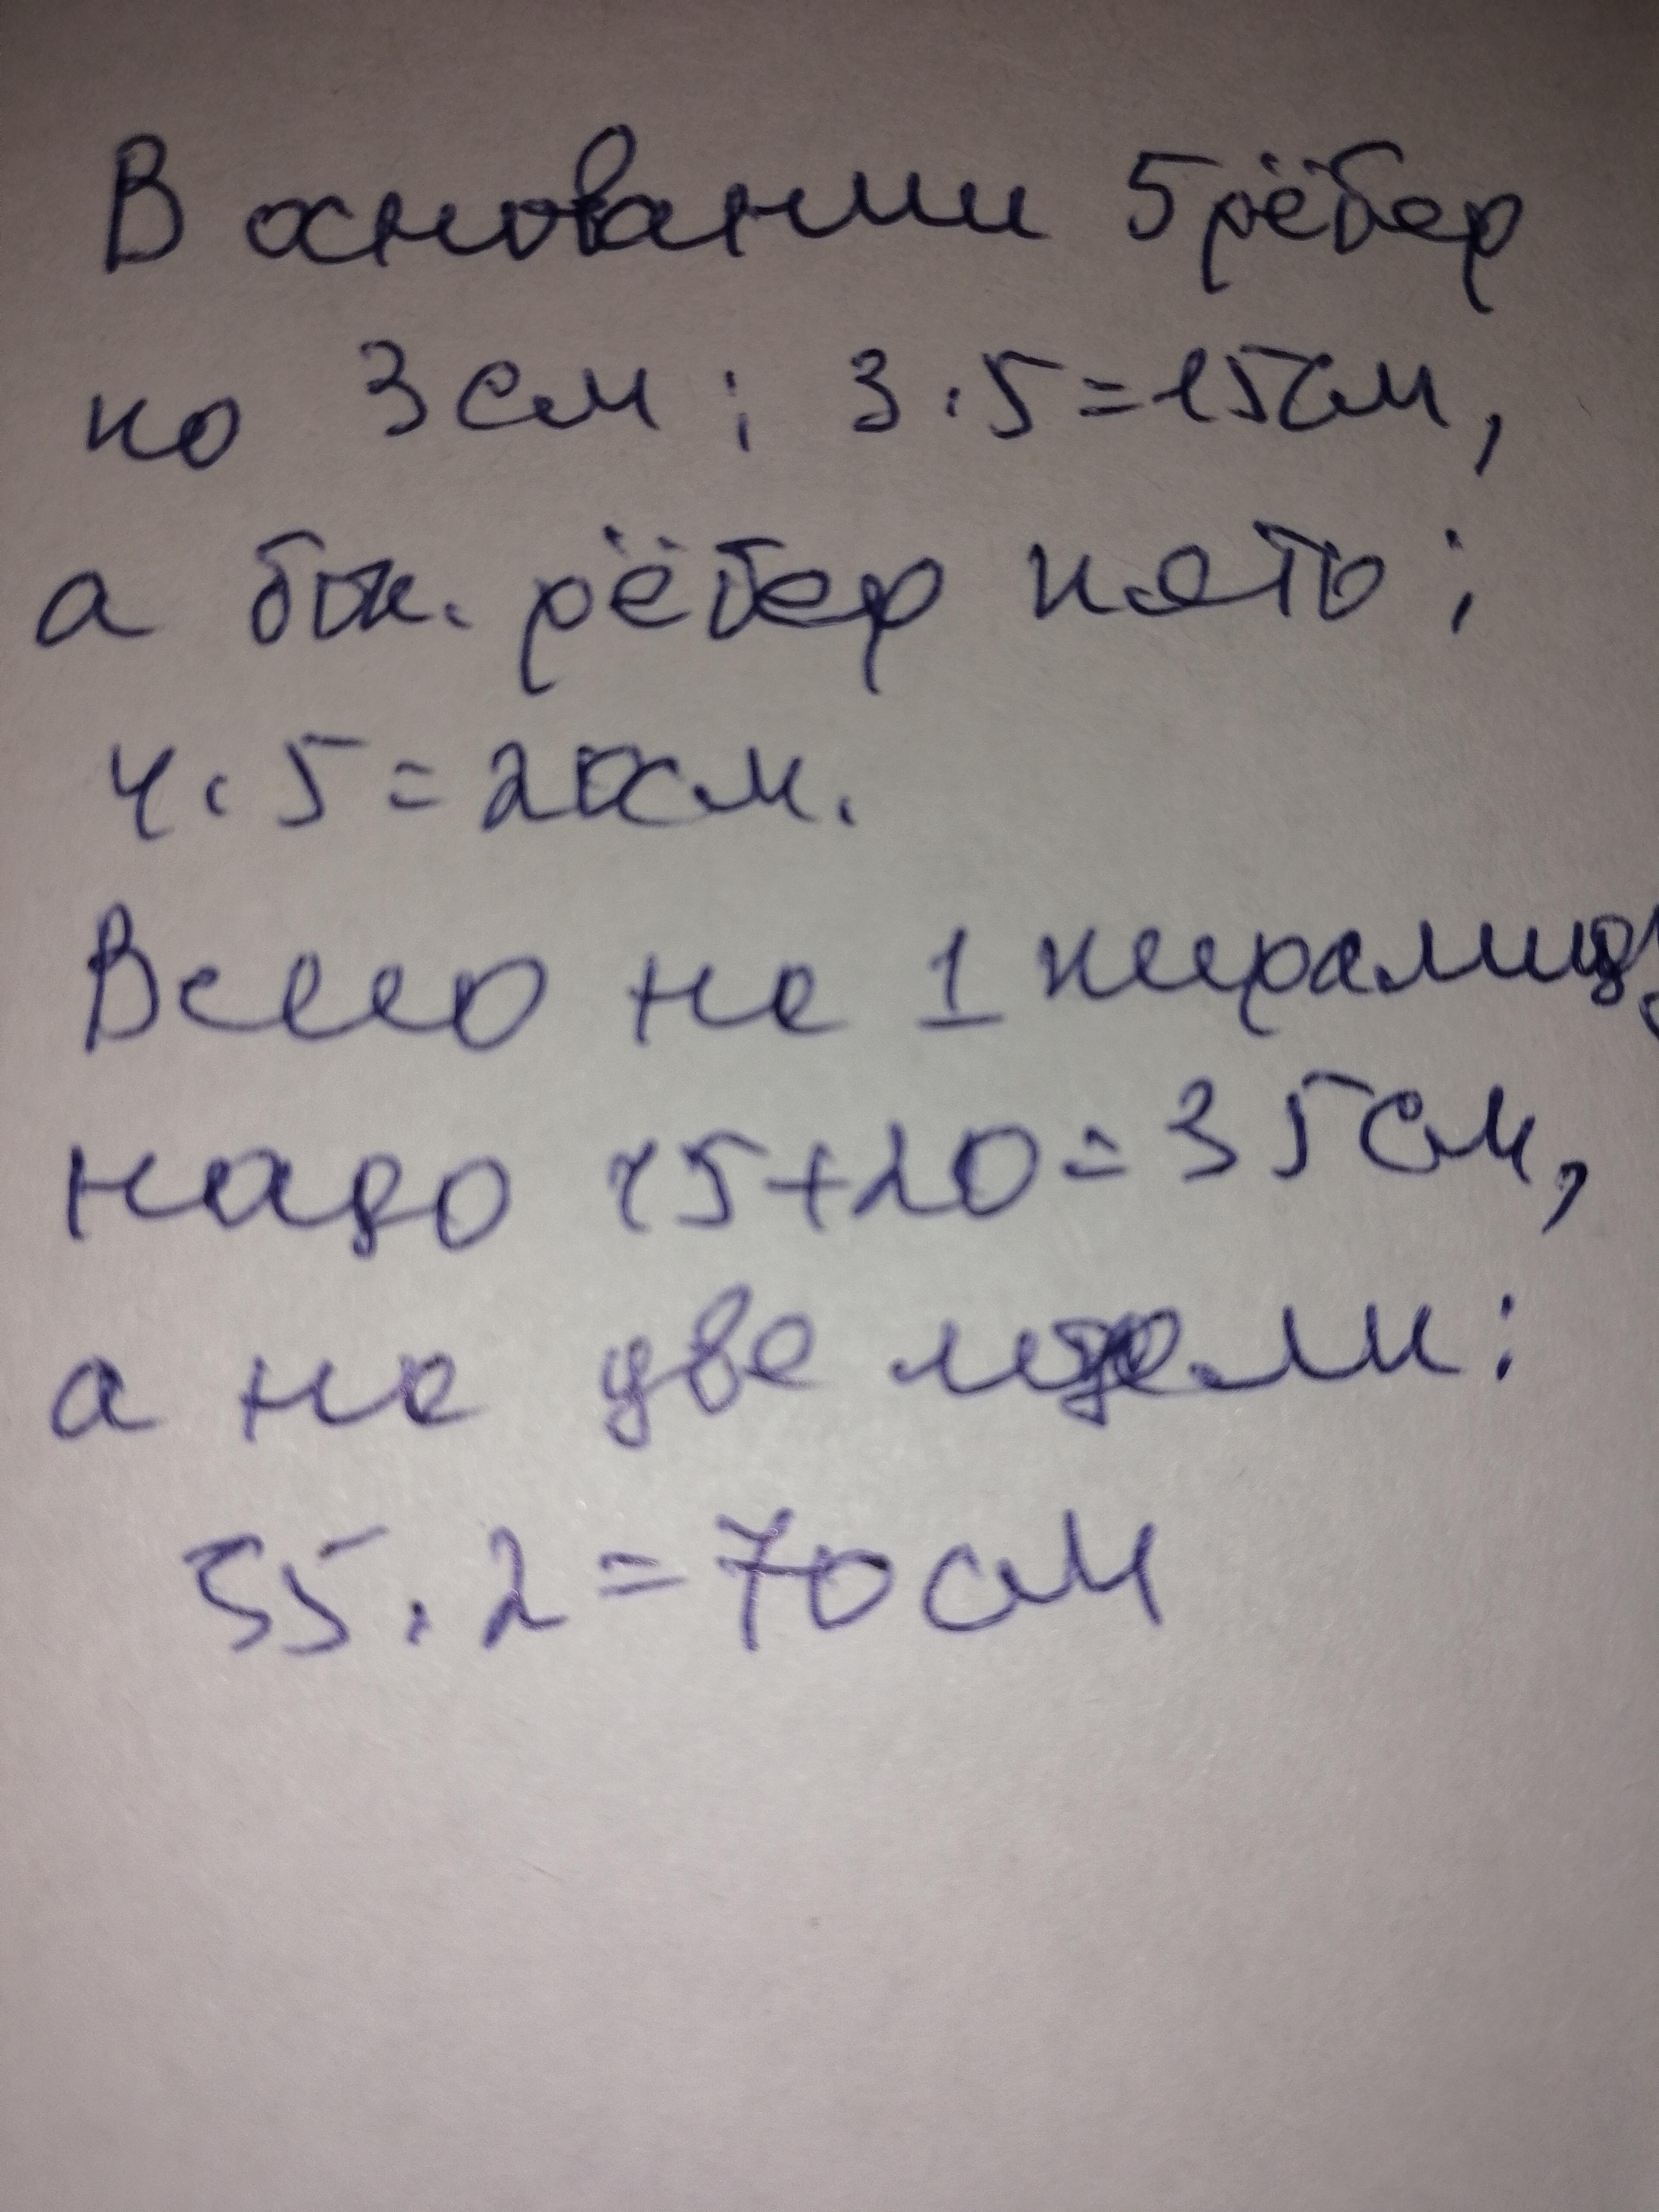 В основании 5 рёбер
по 3 см; 3·5=15см,
а бок. рёбер пять;
4·5=20см.
Всего на 1 пирамиду
надо 15+20=35см,
а на две модели:
35·2=70см